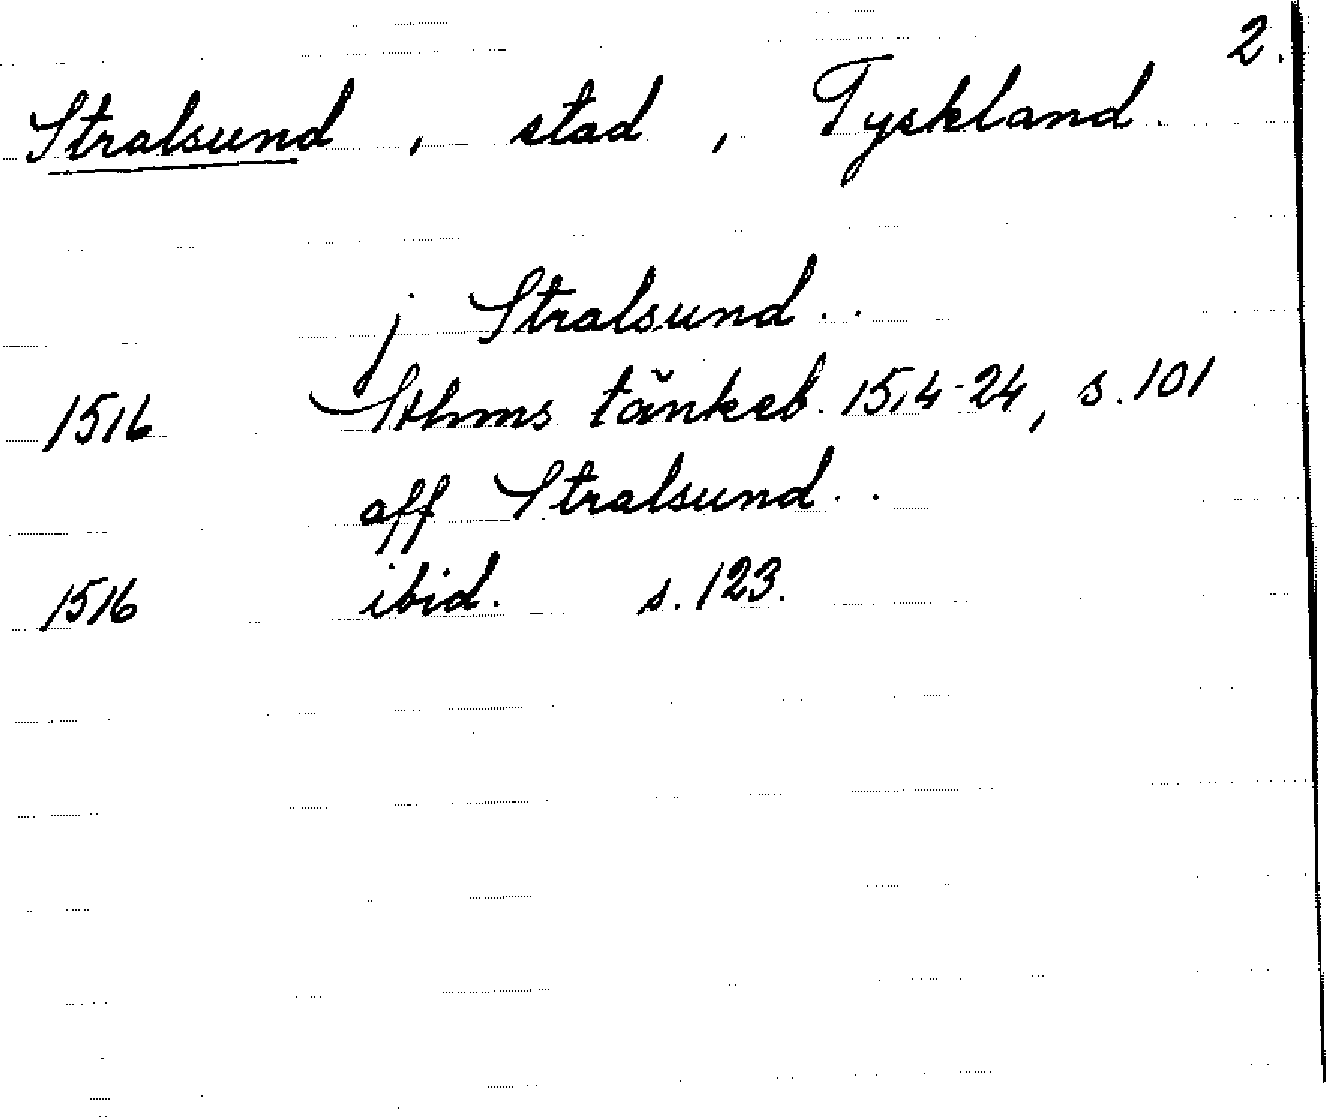 2.
Stralsund, stad, Tyskland.
j Stralsund..
1516 Sthms tänkeb. 1514-24, s. 101
aff Stralsund..
1516 ibid. s. 123.